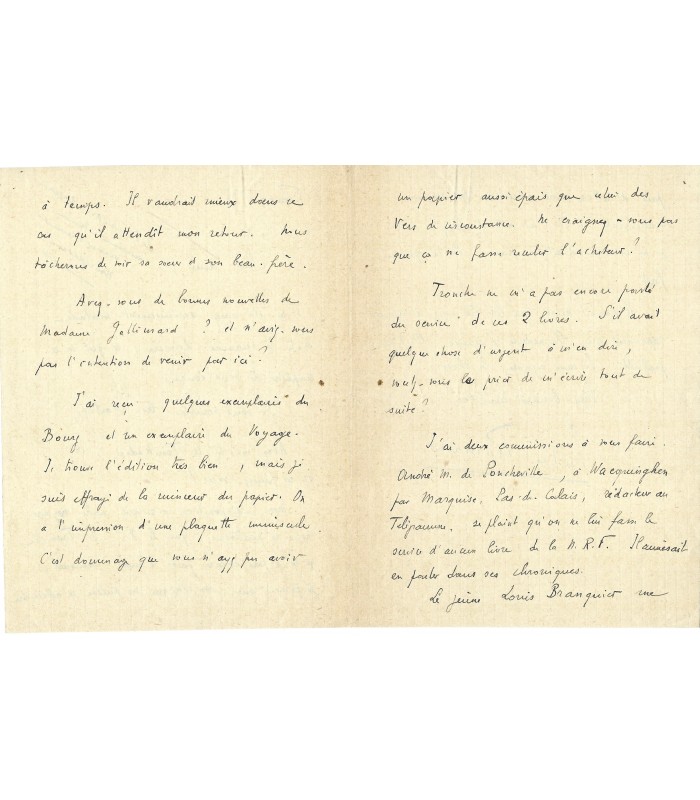 à temps. Il vaudrait mieux dans ce
cas qu'il attendît mon retour. Nous
tâcherons de voir sa sœur et son beau-frère.
Avez-vous de bonnes nouvelles de
Madame Gallimard ? et n'avez-vous
pas l'intention de venir par ici ?
J'ai reçu quelques exemplaires du
Bourg et un exemplaire du Voyage.
Je trouve l'édition très bien, mais je
suis effrayé de la minceur du papier. On
a l'impression d'une plaquette minuscule
C'est dommage que vous n'ayez pu avoir
un papier aussi épais que celui des
Vers de circonstance. Ne craignez-vous pas
que ça ne fasse reculer l'acheteur ?
Tronche ne m'a pas encore parlé
du service de ces 2 livres. S'il avait
quelque chose d'urgent à m'en dire,
voulez-vous le prier de m'écrire tout de
suite ?
J'ai deux commissions à vous faire.
André M. de Poncheville, à Wacquinghen
par Marquise, Pas-de-Calais, rédacteur au
Télégramme, se plaint qu'on ne lui fasse le
service d'aucun livre de la N.R.F. Il aimerait
en parler dans ses chroniques.
Le jeune Louis Branquier me